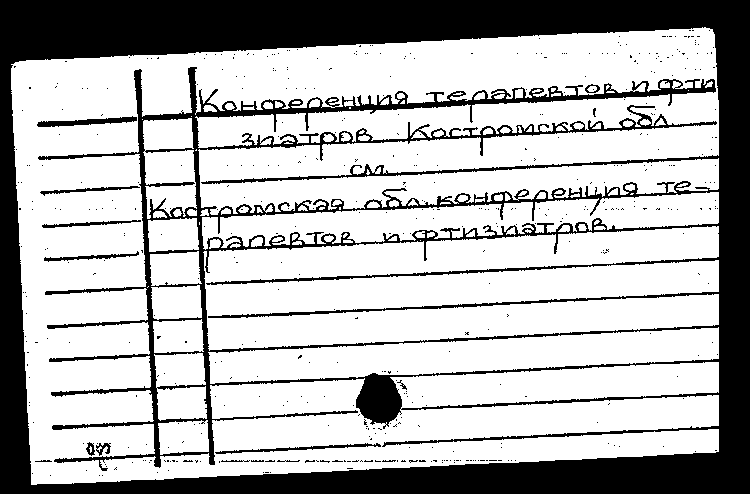 Конференция терапевтов и фти
зиатров Костромской обл.
см.
Костромская обл. конференция те-
рапевтов и фтизиатров.